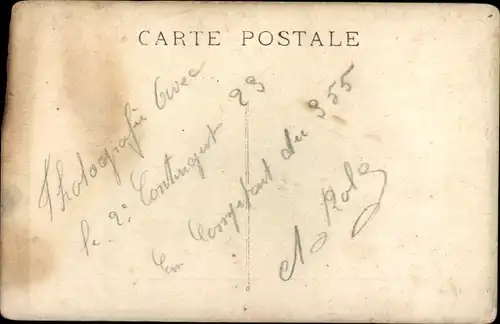 CARTE POSTALE
Photografie Avec
le 2e Contingent 23
En Comptant du 355